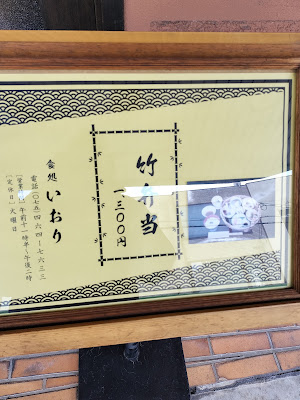 竹弁当
一、三〇〇円
食処 いおり
電話(〇七五)四六四-七六三三
[営業時間]午前十一時半~午後二時
[定休日]火曜日